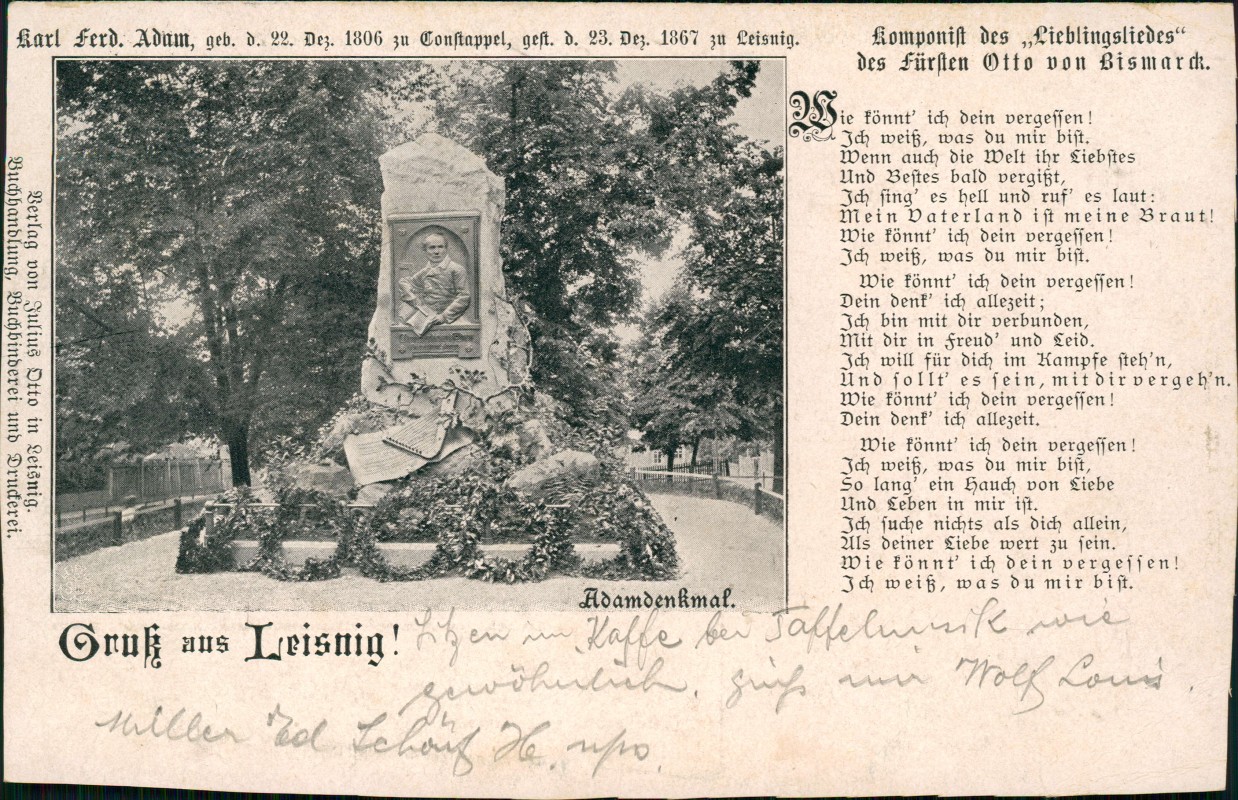 Karl Ferd. Adam, geb. d. 22. Dez. 1806 zu Constappel, gest. d. 23. Dez. 1867 zu Leisnig.
Komponist des „Lieblingsliedes“
des Fürsten Otto von Bismarck.
Wie könnt' ich dein vergessen!
Ich weiß, was du mir bist.
Wenn auch die Welt ihr Liebstes
Und Bestes bald vergißt,
Ich sing' es hell und ruf' es laut:
Mein Vaterland ist meine Braut!
Wie könnt' ich dein vergessen!
Ich weiß, was du mir bist.
Wie könnt' ich dein vergessen!
Dein denk' ich allezeit;
Ich bin mit dir verbunden,
Mit dir in Freud' und Leid.
Ich will für dich im Kampfe steh'n,
Und sollt' es sein, mit dir vergeh'n.
Wie könnt' ich dein vergessen!
Dein denk' ich allezeit.
Wie könnt' ich dein vergessen!
Ich weiß, was du mir bist,
So lang' ein Hauch von Liebe
Und Leben in mir ist.
Ich suche nichts als dich allein,
Als deiner Liebe wert zu sein.
Wie könnt' ich dein vergessen!
Ich weiß, was du mir bist.
Verlag von Julius Otto in Leisnig.
Buchhandlung, Buchbinderei und Druckerei.
Adamdenkmal.
Gruß aus Leisnig!
Sitzen im Kaffe bei Taffelmusik wie
gewöhnlich. Wolf Louis.
Müller Ed